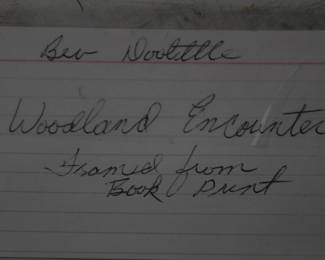 Bev Doolittle
Woodland Encounter
Framed from
Book Print